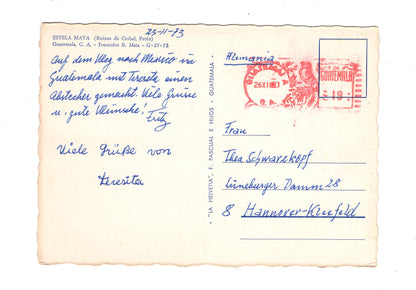 23-11-73
ESTELA MAYA (Ruinas de Ceibal, Petén)
Guatemala, C. A. - Fotocolor R. Mata - G-57-73
Auf dem Weg nach Mexico in
Guatemala mit Teresita einen
Abstecher gemacht. Viele Grüsse
u. gute Wünsche! Fritz
Viele Grüße von
Teresita
"LA HELVETIA", F. PASCUAL E HIJOS - GUATEMALA
Alemania
GUATEMALA
26XI
C.A.
GUATEMALA
19
Frau
Thea Schwarzkopf
Lüneburger Damm 28
8 Hannover-Kleefeld